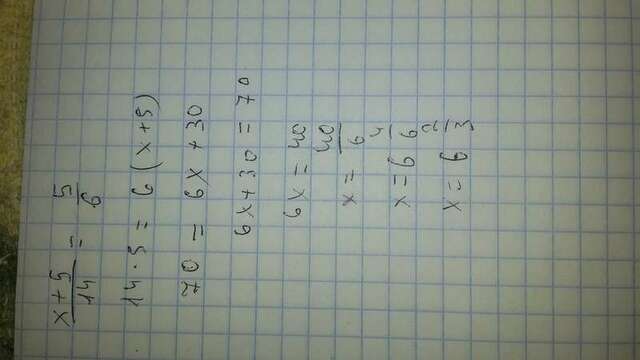 x+5/14 = 5/6
14·5 = 6(x+5)
70 = 6x+30
6x+30 = 70
6x = 40
x = 40/6
x = 6 4/6
x = 6 2/3